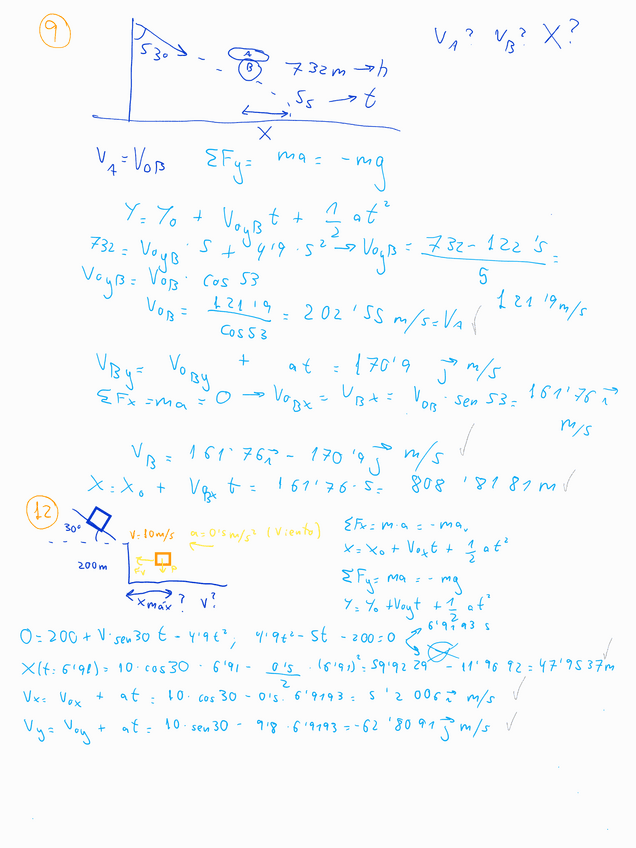 9
V_A? V_B? X?
53º
A
B
732m → h
5s → t
X
V_A = V_0B ΣFy = ma = -mg
Y = Y_0 + V_0yB t + 1/2 at²
732 = V_0yB · 5 + 4'9 · 5² → V_0yB = (732 - 122'5)/5 = 121'9 m/s
V_0yB = V_0B · cos 53
V_0B = 121'9/cos53 = 202'55 m/s = V_A ✓
V_By = V_0By + at = 170'9 j m/s
ΣFx = ma = 0 → V_0Bx = V_Bx = V_0B · sen 53 = 161'76 i m/s
V_B = 161'76 i - 170'9 j m/s ✓
X = X_0 + V_Bx t = 161'76 · 5 = 808'8181 m ✓
12
30º
V=10m/s a=0'5m/s² (Viento)
200m
Xmáx? V?
ΣFx = m·a = -ma
X = X_0 + V_0x t + 1/2 at²
ΣFy = ma = -mg
Y = Y_0 + V_0y t + 1/2 at²
0 = 200 + V·sen30 t - 4'9t², 4'9t² - 5t - 200 = 0
6'9193 s
X(t=6'98) = 10·cos30 · 6'91 - 0's/2 · (6'91)² = 59'9229 - 11'9692 = 47'9537m ✓
Vx = V_0x + at = 10·cos30 - 0's·6'9193 = 5'2006 i m/s ✓
Vy = V_0y + at = 10·sen30 - 9'8·6'9193 = -62'8091 j m/s ✓